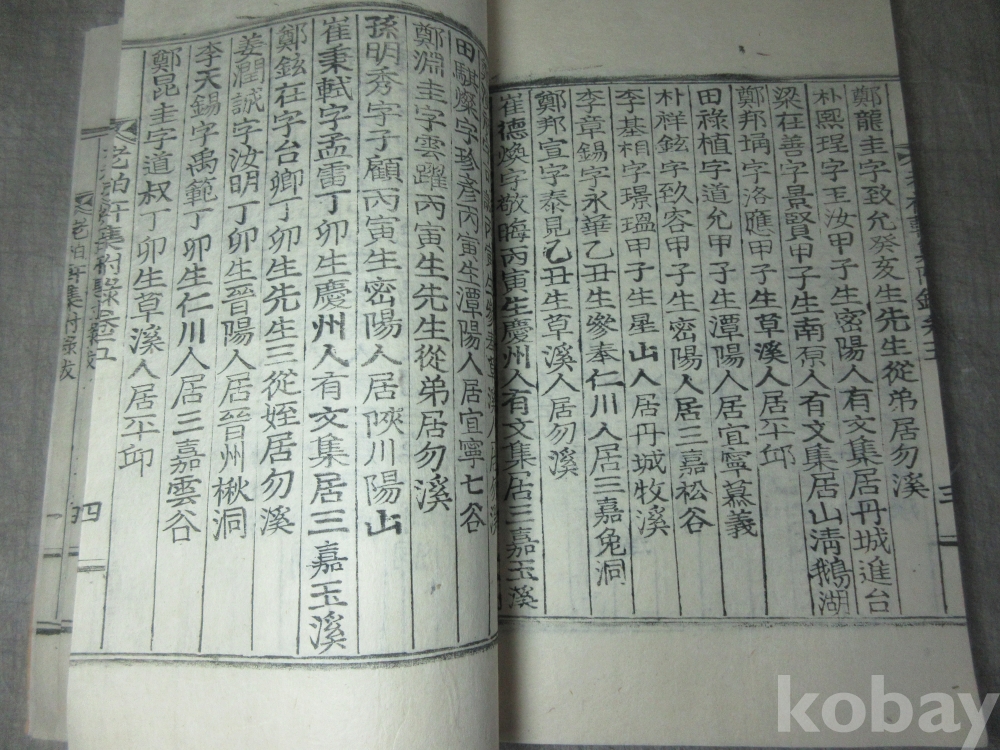 鄭龍圭字致允癸亥生先生從弟居勿溪
朴熙珵字玉汝甲子生密陽人有文集居丹城進台
梁在善字景賢甲子生南原人有文集居山清鵝湖
鄭邦埇字洛應甲子生草溪人居平邱
田祿植字道允甲子生潭陽人居宜寧慕義
朴祥鉉字致容甲子生密陽人居三嘉松谷
李基相字璟瑥甲子生星山人居丹城牧溪
李章錫字永華乙丑生參奉仁川人居三嘉兔洞
鄭邦宣字泰見乙丑生草溪人居勿溪
崔德煥字敬晦丙寅生慶州人有文集居三嘉玉溪
田騏燦字珍彥丙寅生潭陽人居宜寧七谷
鄭淵圭字雲躍丙寅生先生從弟居勿溪
孫明秀字子顧丙寅生密陽人居陜川陽山
崔秉軾字孟雷丁卯生慶州人有文集居三嘉玉溪
鄭鉉在字台卿丁卯生先生三從姪居勿溪
姜潤誠字汝明丁卯生晉陽人居晉州楸洞
李天錫字禹範丁卯生仁川人居三嘉雲谷
鄭昆圭字道叔丁卯生草溪人居平邱
老柏軒集附錄卷五
四
三
kobay